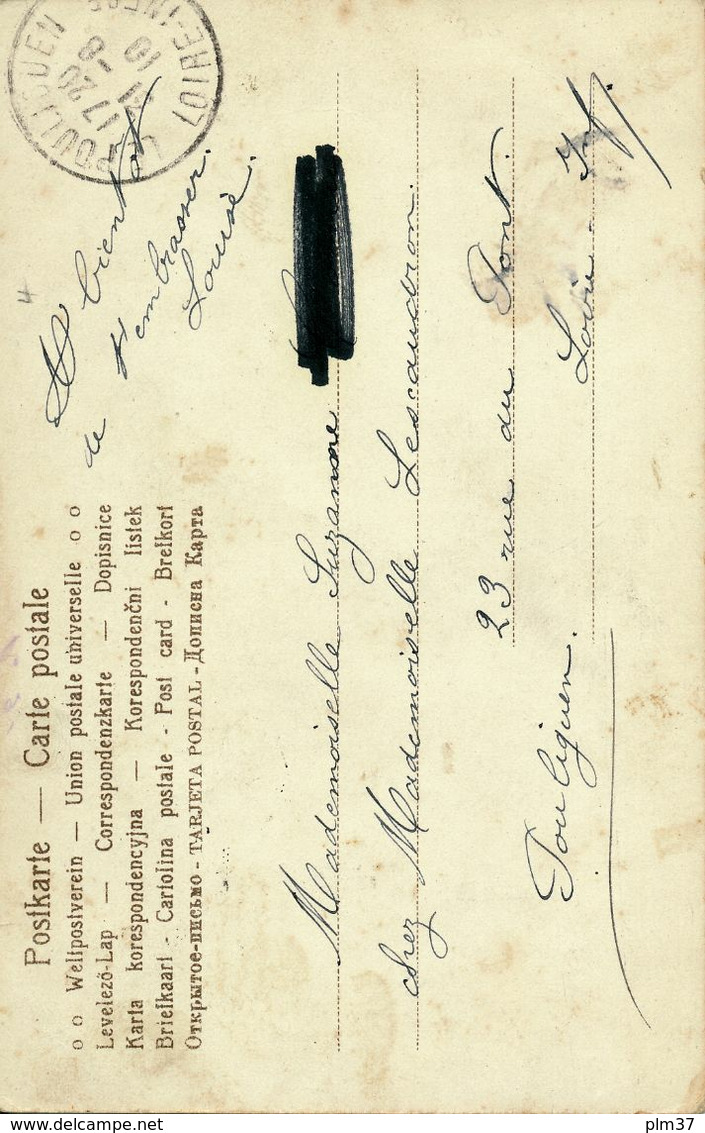 Postkarte — Carte postale
o o Weltpostverein — Union postale universelle o o
Levelező-Lap — Correspondenzkarte — Dopisnice
Karta korespondencyjna — Korespondenční listek
Briefkaart - Cartolina postale - Post card - Brefkort
Открытое-письмо - TARJETA POSTAL - Дописна Карта
A bientôt
de t'embrasser.
Louise.
LE POULIGUEN
LOIRE-INFRE
17 20
8
10
Mademoiselle Suzanne
chez Mademoiselle Lescaudron.
23 rue du Pont.
Pouliguen.
Loire-Inf.
delcampe.net
plm37